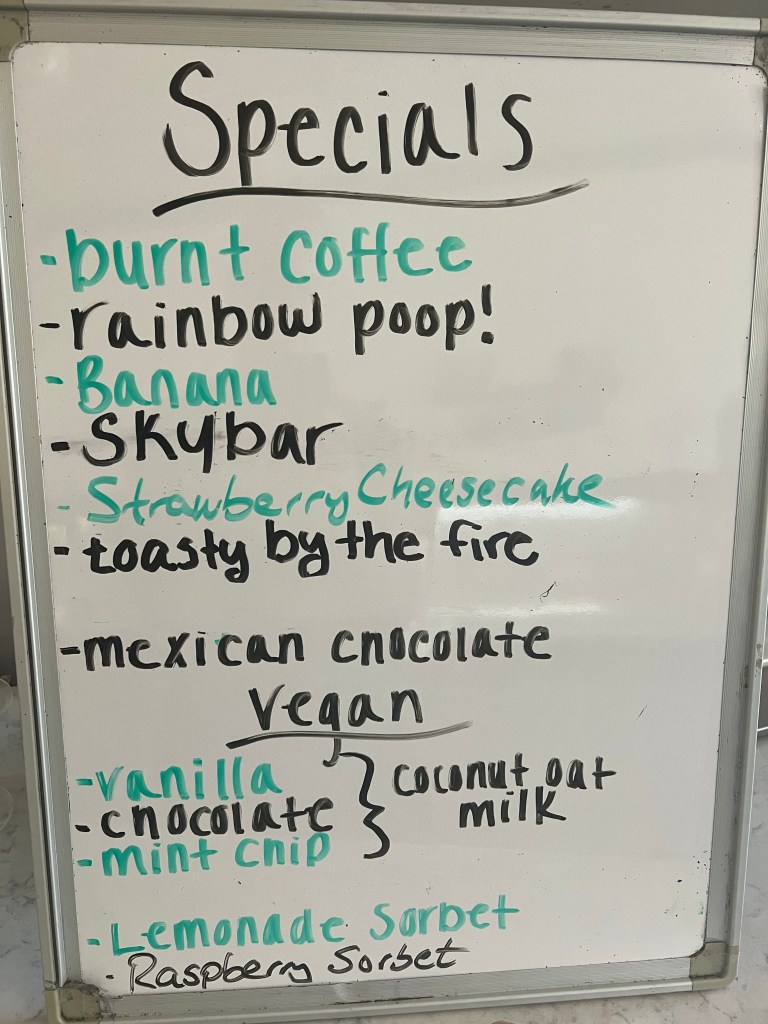 Specials
-burnt coffee
-rainbow poop!
-Banana
-Skybar
-Strawberry Cheesecake
-toasty by the fire
-mexican chocolate
vegan
-vanilla
-chocolate
-mint chip
coconut oat
milk
-Lemonade Sorbet
-Raspberry Sorbet